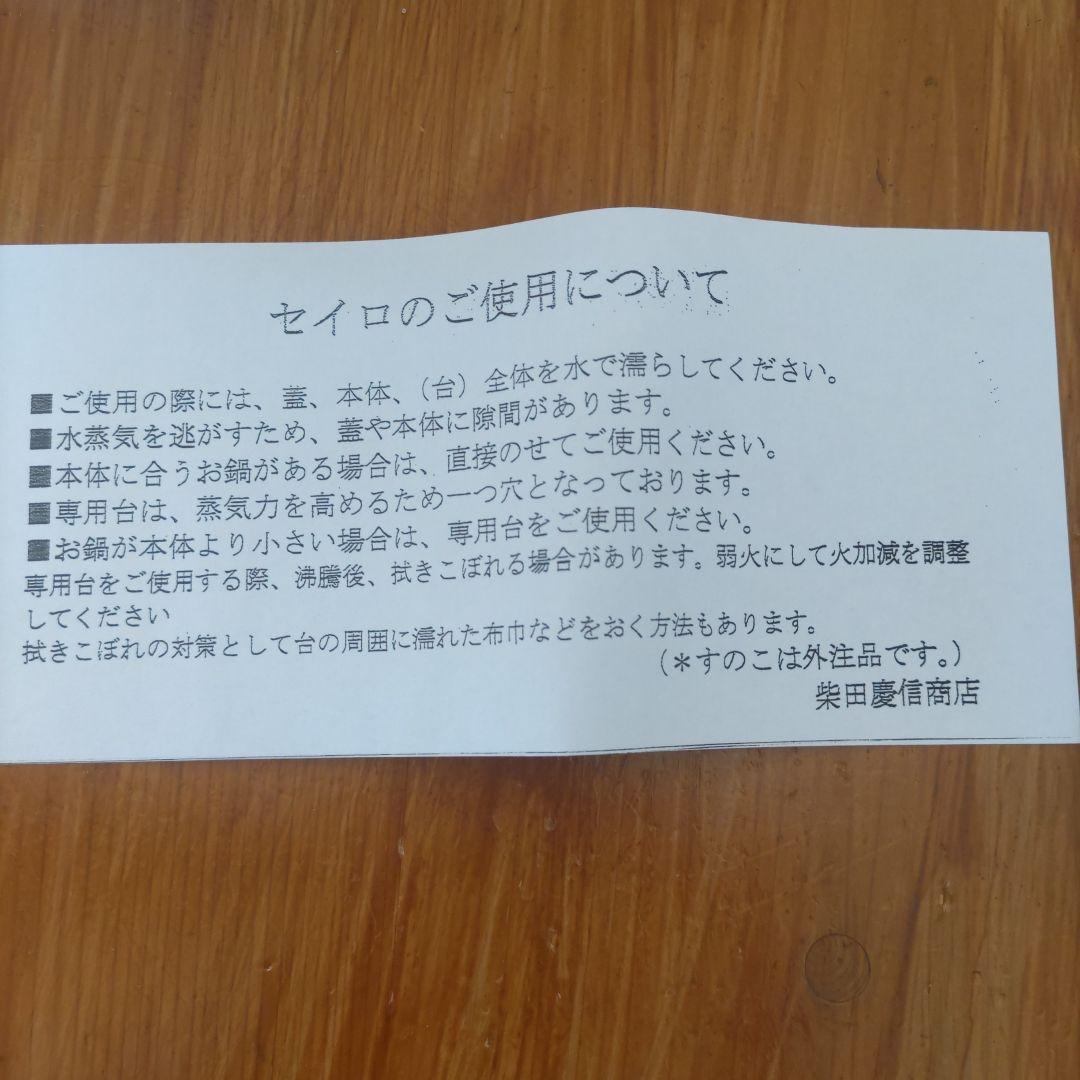 セイロのご使用について
■ご使用の際には、蓋、本体、（台）全体を水で濡らしてください。
■水蒸気を逃がすため、蓋や本体に隙間があります。
■本体に合うお鍋がある場合は、直接のせてご使用ください。
■専用台は、蒸気力を高めるため一つ穴となっております。
■お鍋が本体より小さい場合は、専用台をご使用ください。
専用台をご使用する際、沸騰後、拭きこぼれる場合があります。弱火にして火加減を調整
してください
拭きこぼれの対策として台の周囲に濡れた布巾などをおく方法もあります。
（＊すのこは外注品です。）
柴田慶信商店